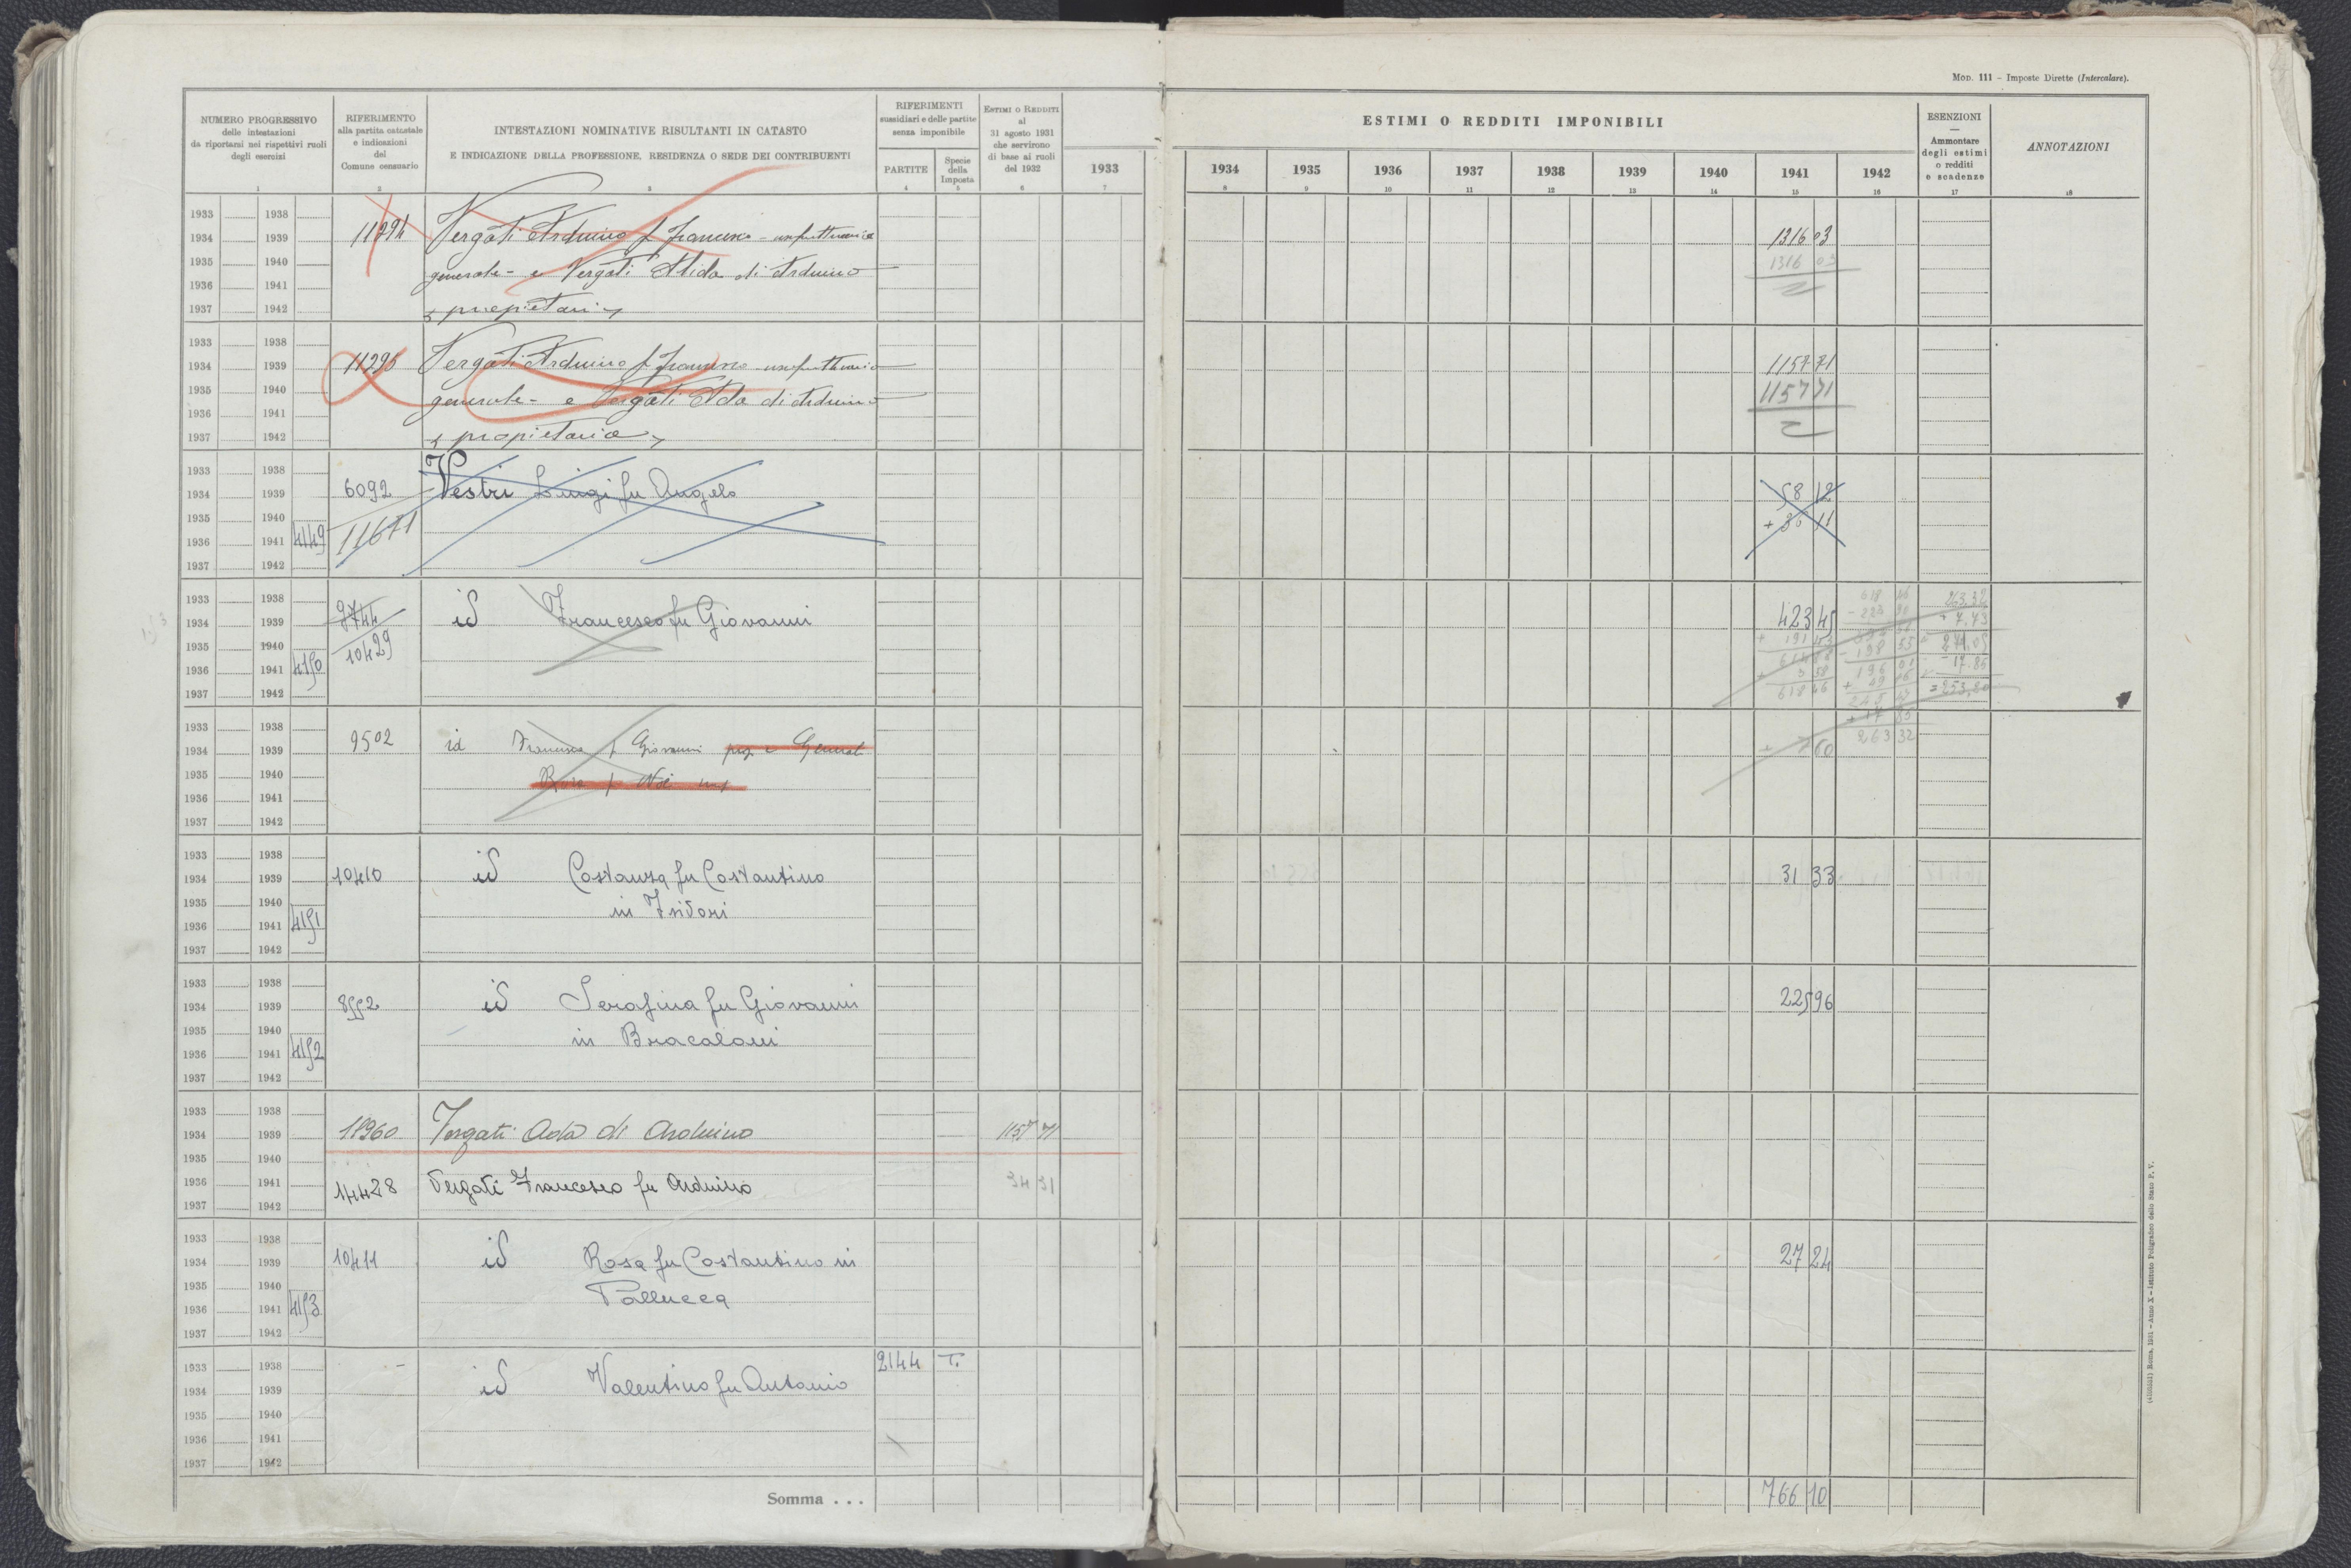 Mod. 111 – Imposte Dirette (Intercalare).
NUMERO PROGRESSIVO
delle intestazioni
da riportarsi nei rispettivi ruoli
degli esercizi
1
RIFERIMENTO
alla partita catastale
e indicazioni
del
Comune censuario
2
INTESTAZIONI NOMINATIVE RISULTANTI IN CATASTO
E INDICAZIONE DELLA PROFESSIONE, RESIDENZA O SEDE DEI CONTRIBUENTI
3
RIFERIMENTI
sussidiari e delle partite
senza imponibile
PARTITE
4
Specie
della
Imposta
5
ESTIMI O REDDITI
al
31 agosto 1931
che servirono
di base ai ruoli
del 1932
6
1933
7
ESTIMI O REDDITI IMPONIBILI
1934 1935 1936 1937 1938 1939 1940 1941 1942
8 9 10 11 12 13 14 15 16
ESENZIONI
—
Ammontare
degli estimi
o redditi
e scadenze
17
ANNOTAZIONI
18
1933 1938
1934 1939 11294 Vergati Arduino f Francesco - usufruttuario 1316 03
1935 1940 generale - e Vergati Alida di Arduino 1316 03
1936 1941
1937 1942 propietari
1933 1938
1934 1939 11295 Vergati Arduino f Francesco usufruttuario 1157 71
1935 1940 generale - e Vergati Ada di Arduino 1157 71
1936 1941
1937 1942 propietaria
1933 1938
1934 1939 6092 Vestri Luigi fu Angelo 58 12
1935 1940 + 36 11
1936 1941 4149 11671
1937 1942
1933 1938 9744 id Francesco fu Giovanni 618 46 263.32
1934 1939 423 45 7.73
1935 1940 10429 271.05
1936 1941 4150 - 17.85
1937 1942 618 46 = 253,20
1933 1938 + 17 85
1934 1939 9502 id Francesco f Giovanni prop e Generali + 7 60 263 32
1935 1940 Rosa f Noè usuf
1936 1941
1937 1942
1933 1938
1934 1939 10410 id Costanza fu Costantino 31 33
1935 1940 in Isidori
1936 1941 4151
1937 1942
1933 1938
1934 1939 8552 id Serafina fu Giovanni 225 96
1935 1940 in Bracaloni
1936 1941 4152
1937 1942
1933 1938
1934 1939 11960 Vergati Ada di Arduino 1157 71
1935 1940
1936 1941 14428 Vergati Francesco fu Arduino 34 31
1937 1942
1933 1938
1934 1939 10411 id Rosa fu Costantino in 27 24
1935 1940 Pallucca
1936 1941 4153
1937 1942
1933 1938 2144 T.
1934 1939 id Valentino fu Antonio
1935 1940
1936 1941
1937 1942
Somma . . . 766 10
(4100551) Roma, 1931 – Anno X – Istituto Poligrafico dello Stato P. V.